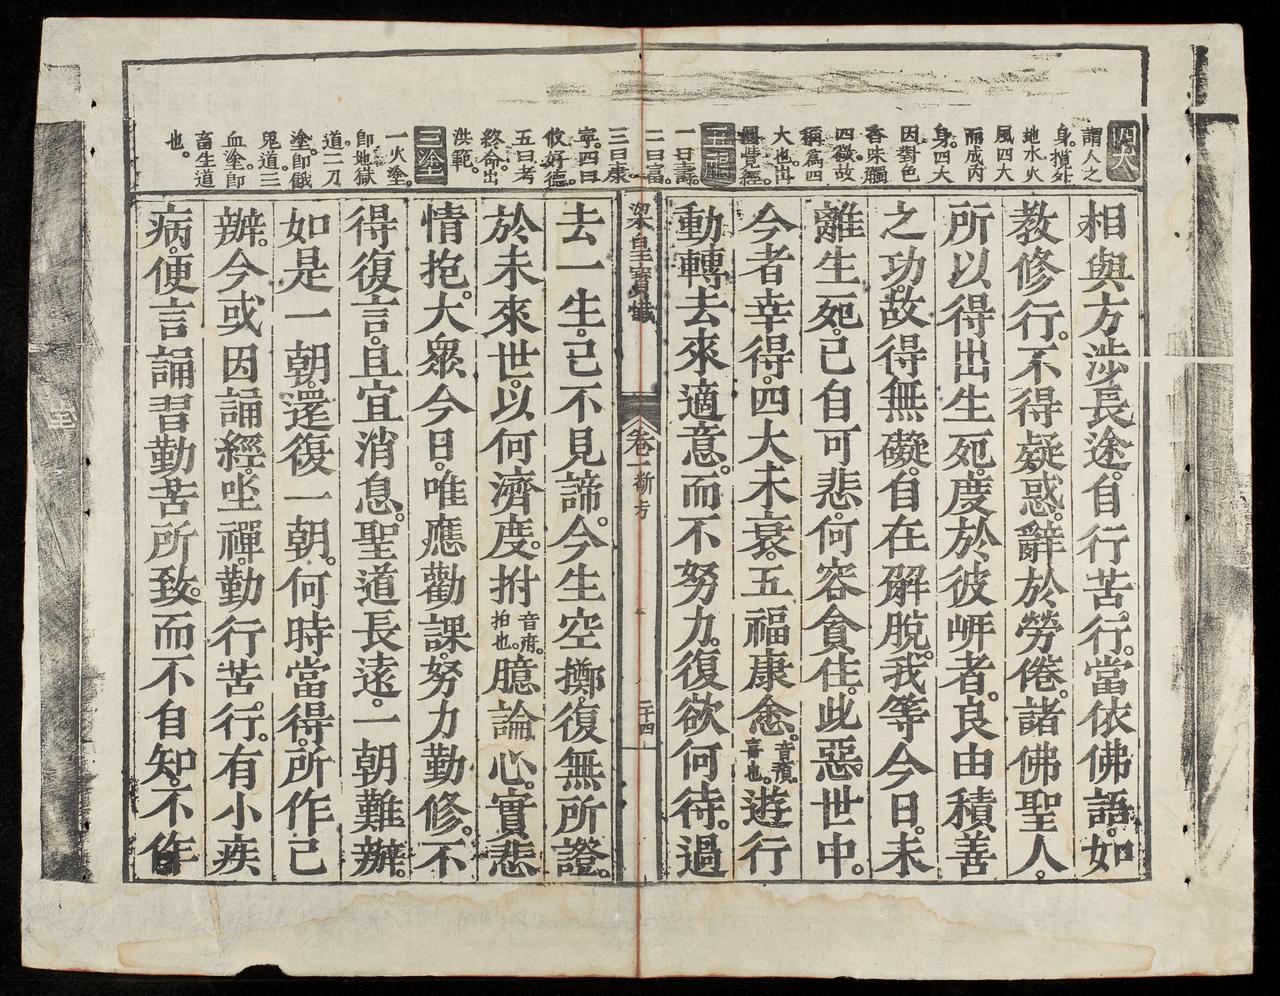 四大
謂人之
身。攬外
地水火
風四大
而成內
身。四大
因對色
香味觸
四微故
稱為四
大也。出
圓覺經。
五福
一曰壽。
二曰富。
三曰康
寧。四曰
攸好德。
五曰考
終命。出
洪範。
三塗
一火塗。
即地獄
道。二刀
塗。即餓
鬼道。三
血塗。即
畜生道
也。
相與方涉長途。自行苦行。當依佛語。如
教修行。不得疑惑。辭於勞倦。諸佛聖人。
所以得出生死。度於彼岸者。良由積善
之功。故得無礙。自在解脫。我等今日。未
離生死。已自可悲。何容貪住。此惡世中。
今者幸得。四大未衰。五福康悆。音預。喜也。遊行
動轉。去來適意。而不努力。復欲何待。過
梁皇寶懺 卷一斷疑 二十四
去一生。已不見諦。今生空擲。復無所證。
於未來世。以何濟度。拊音府。拍也。臆論心。實悲
情抱。大眾今日。唯應勸課。努力勤修。不
得復言。且宜消息。聖道長遠。一朝難辦。
如是一朝。還復一朝。何時當得。所作已
辦。今或因誦經。坐禪。勤行苦行。有小疾
病。便言誦習勤苦所致。而不自知。不作